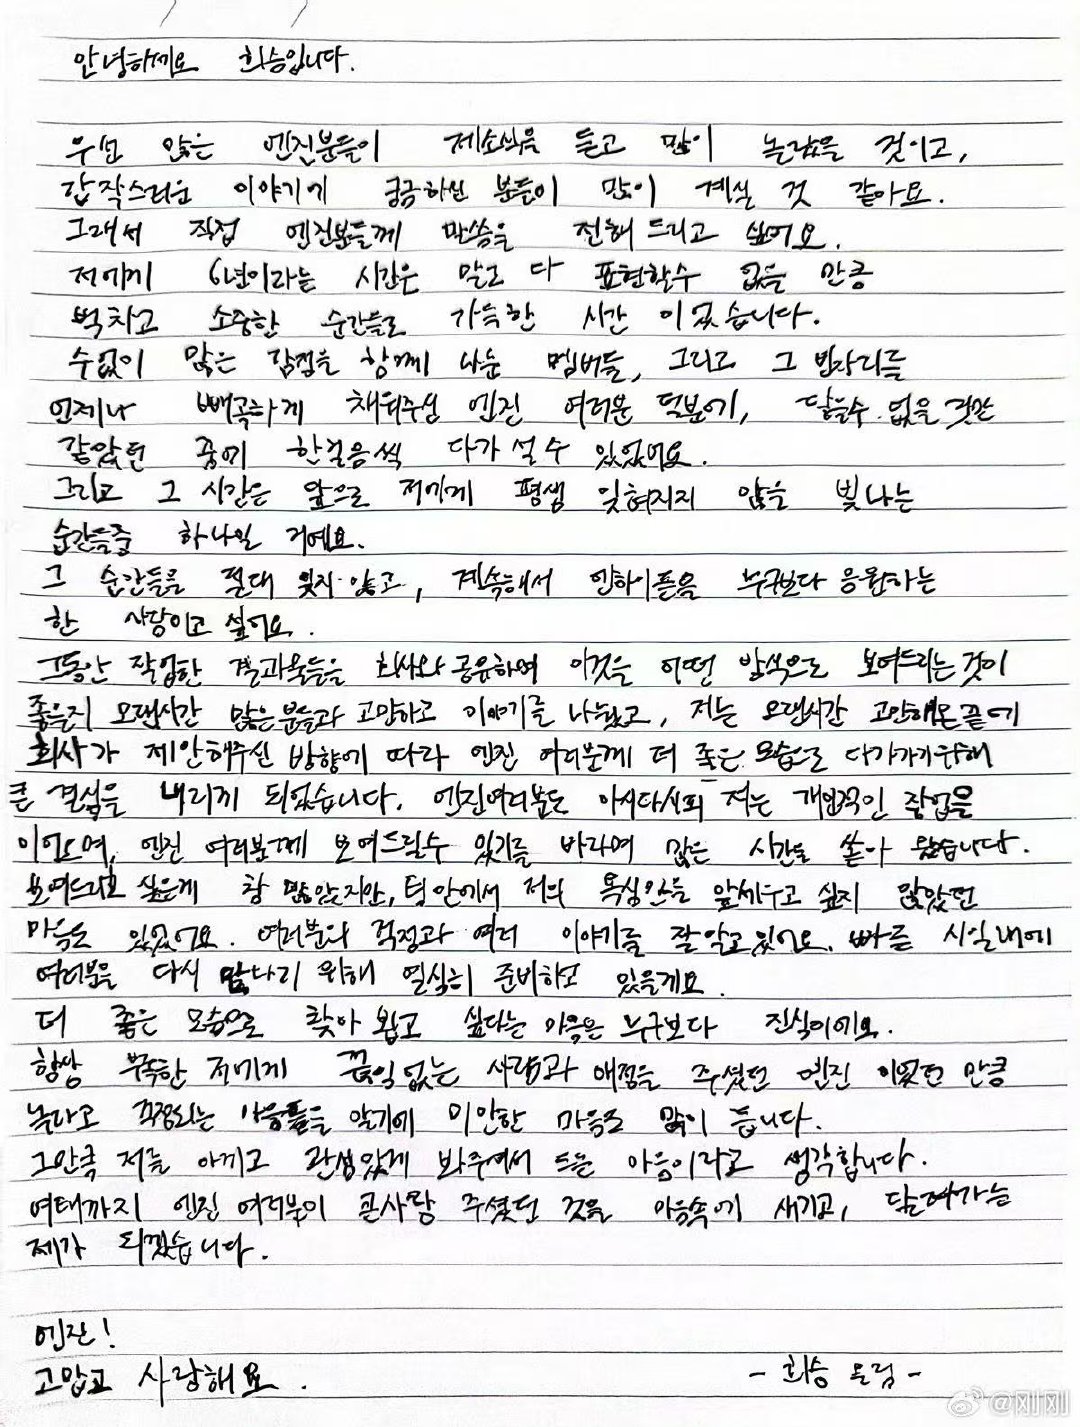 안녕하세요 희승입니다.
우선 많은 엔진분들이 제소식을 듣고 많이 놀랐을 것이고,
갑작스러운 이야기에 궁금하신 분들이 많이 계실 것 같아요.
그래서 직접 엔진분들께 말씀을 전해 드리고 싶어요.
저에게 6년이라는 시간은 말로 다 표현할수 없을 만큼
벅차고 소중한 순간들로 가득한 시간 이었습니다.
수없이 많은 감정을 함께 나눈 멤버들, 그리고 그 빈자리를
언제나 빼곡하게 채워주신 엔진 여러분 덕분에, 닿을수 없을 것만
같았던 꿈에 한걸음씩 다가 설 수 있었어요.
그리고 그 시간은 앞으로 저에게 평생 잊혀지지 않을 빛나는
순간들중 하나일 거예요.
그 순간들을 절대 잊지 않고, 계속해서 엔하이픈을 누구보다 응원하는
한 사람이고 싶어요.
그동안 작업한 결과물들을 회사와 공유하며 이것을 어떤 방식으로 보여드리는것이
좋을지 오랜시간 많은분들과 고민하고 이야기를 나눴고, 저는 오랜시간 고민해온끝에
회사가 제안해주신 방향에 따라 엔진 여러분께 더 좋은 모습으로 다가가기위해
큰 결심을 내리게 되었습니다. 엔진여러분도 아시다시피 저는 개인적인 작업을
이어오며, 엔진 여러분께 보여드릴수 있기를 바라며 많은 시간을 쏟아 왔습니다.
보여드리고 싶은게 참 많았지만, 팀 안에서 저의 욕심만을 앞세우고 싶지 않았던
마음도 있었어요. 여러분의 걱정과 여러 이야기를 잘 알고있어요. 빠른 시일내에
여러분을 다시 만나기 위해 열심히 준비하고 있을게요.
더 좋은 모습으로 찾아 뵙고 싶다는 마음은 누구보다 진심이에요.
항상 부족한 저에게 끊임없는 사랑과 애정을 주셨던 엔진 이었던 만큼
놀라고 걱정되는 마음들을 알기에 미안한 마음도 많이 듭니다.
그만큼 저를 아끼고 관심있게 봐주셔서 드는 마음이라고 생각합니다.
여태까지 엔진 여러분이 큰사랑 주셨던 것을 마음속에 새기고, 달려가는
제가 되겠습니다.
엔진!
고맙고 사랑해요.
- 희승 올림 -
@刚刚